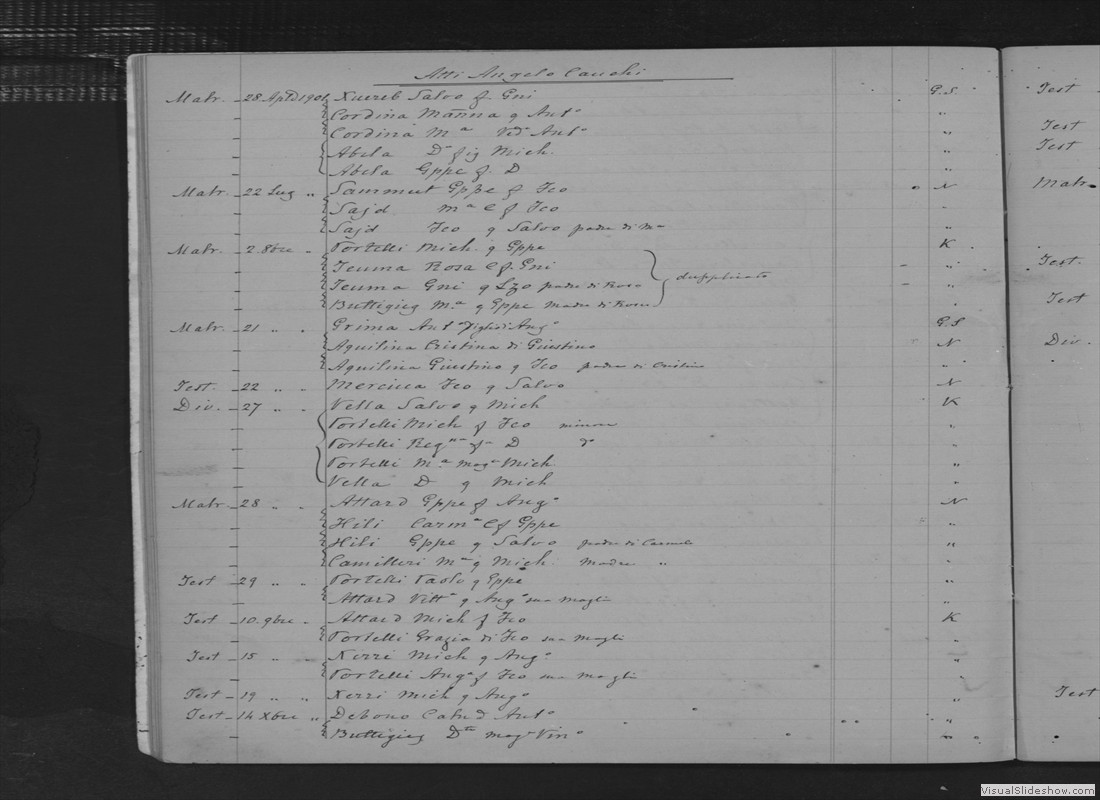 Atti Angelo Cauchi
Matr. 28 Apl 1901 Xuereb Salvo f. Gni G.S. Test
Cordina Manna q Anto "
Cordina Ma Va Anto " Test
Abela Da fig Mich. " Test
Abela Gppe f. D "
Matr. 22 Lug " Sammut Gppe f Fco N Matr.
Sajd Ma C f Fco "
Sajd Fco q Salvo padre di Ma "
Matr. 2. 8bre " Portelli Mich. q Gppe K
Teuma Rosa C f. Gni " Test.
Teuma Gni q Lzo padre di Rosa " dupplicato
Buttigieg Ma q Gppe madre di Rosa " Test
Matr. 21 " " Grima Anto figlio di Ango G.S
Aquilina Cristina di Giustino N Div.
Aquilina Giustino q Fco padre di Cristina "
Test. 22 " " Mercieca Fco q Salvo N
Div. 27 " " Vella Salvo q Mich K
Portelli Mich f Fco minore "
Portelli f D "
Portelli Ma mog Mich "
Vella D q Mich "
Matr. 28 " " Attard Gppe f Ango N
Hili Carma C f Gppe "
Hili Gppe q Salvo padre di Carmela "
Camilleri Ma q Mich. madre " "
Test 29 " " Portelli Paolo q Gppe "
Attard Vitta q Ango sua moglie "
Test 10. 9bre " Attard Mich f Fco K
Portelli Grazia di Fco sua moglie "
Test 15 " " Xerri Mich q Ango "
Portelli Anga f Fco sua moglie "
Test 19 " " Xerri Mich q Ango " Test
Test 14 Xbre " Debono Anto "
Buttigieg Da mog Vino "
VisualSlideshow.com